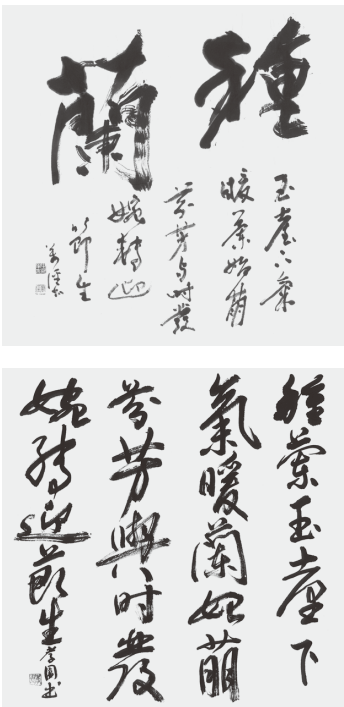 種蘭
玉臺下氣
暖蘭始萌
芬芳与时發
婉轉迎
節生
種蘭玉臺下
氣暖蘭始萌
芬芳與时發
婉轉迎節生